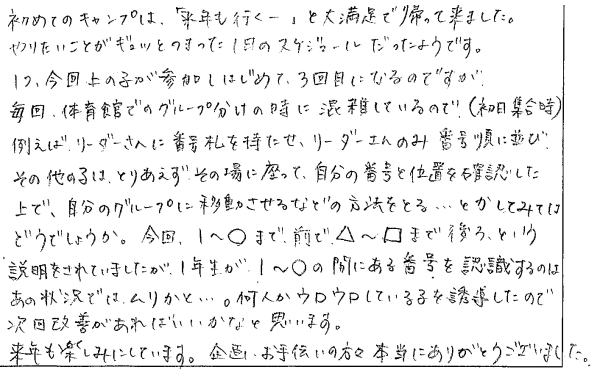 初めてのキャンプは、「来年も行くー」と大満足で帰って来ました。
やりたいことがギュッとつまった1日のスケジュールだったようです。
1つ、今回上の子が参加しはじめて、3回目になるのですが、
毎回、体育館でのグループ分けの時に混雑しているので(初日集合時)
例えば、リーダーさんに番号札を持たせ、リーダーさんのみ番号順に並び、
その他の子は、とりあえずその場に座って、自分の番号と位置を確認した
上で、自分のグループに移動させるなどの方法をとる…とかしてみては
どうでしょうか。今回、1〜○まで前で、△〜□まで後ろ、という
説明をされていましたが、1年生が、1〜○の間にある番号を認識するのは
あの状況では、ムリかと…。何人かウロウロしている子を誘導したので
次回改善があればいいかなと思います。
来年も楽しみにしています。企画、お手伝いの方々本当にありがとうございました。